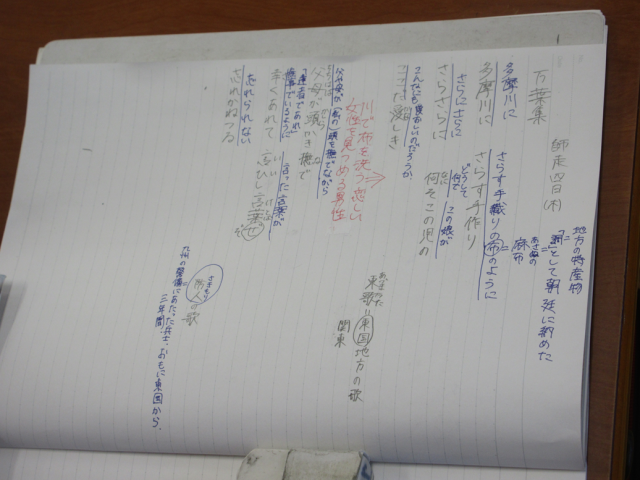 万葉集
師走四日(木)
地方の特産物
「調」として朝廷に納めた
あさぬの
麻布
多摩川に
さらす手織りの布のように
多摩川に
さらす手作り
さらにさらに
どうして
何で
この娘が
さらさらに
何そこの児の
こんなにも愛おしいのだろうか
ここだ愛しき
川で布を洗う恋しい
女性を見つめる男性
あずまうた
東歌=東国地方の歌
関東
父母が
私の頭を撫でながら
父母が頭かき撫で
「達者であれ」
言った言葉が
幸くあれて
言ひし言葉ぜ
忘れられない
忘れかねつる
さきもり
防人の歌
九州の警備にあたった兵士、おもに東国から
三年間